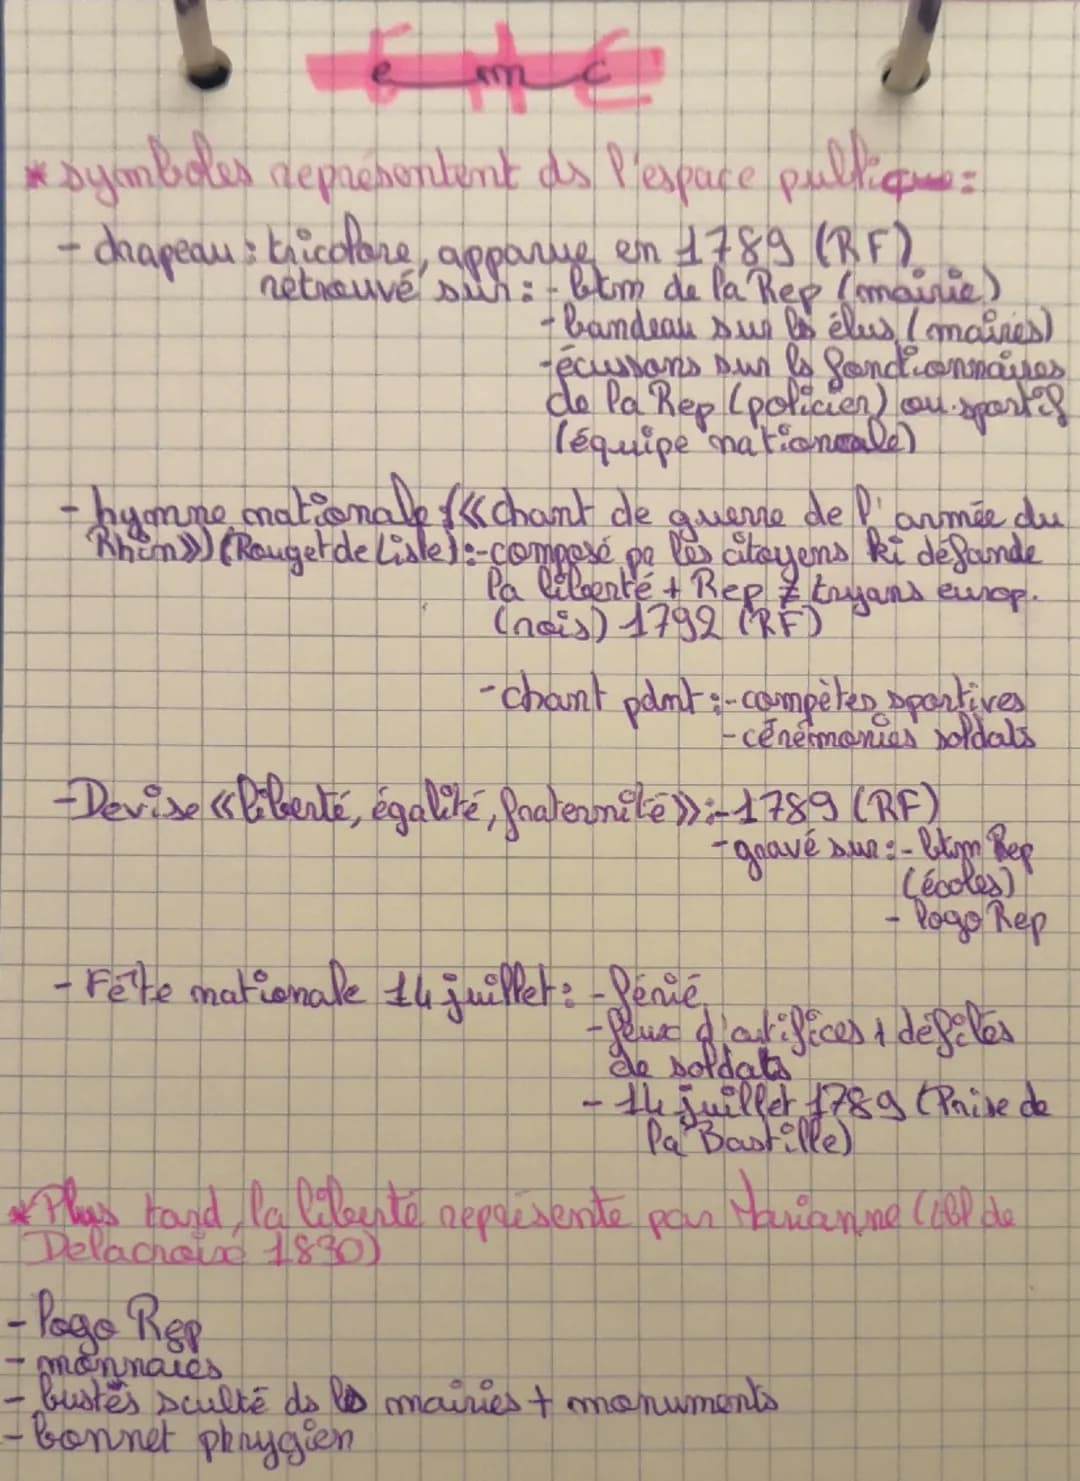 EMC
* symboles représentent ds l'espace publique :
- drapeau : tricolore, apparue en 1789 (RF)
retrouvé sur : - btm de la Rep (mairie)
- bandeau sur ls élus (maires)
- écussons sur ls fonctionnaires
de la Rep (policier) ou sportif
(équipe nationale)
- hymne nationale («chant de guerre de l'armée du
Rhin») (Rouget de Lisle) : - composé pr les citoyens ki défande
la liberté + Rep ≠ tryans europ.
(rois) 1792 (RF)
- chant pdnt : - compètes sportives
- cérémonies soldats
- Devise «liberté, égalité, fraternité» : - 1789 (RF)
- gravé sur : - btm Rep
(écoles)
- logo Rep
- Fête nationale 14 juillet : - férié
- feux d'artifices + défilés
de soldats
- 14 juillet 1789 (Prise de
la Bastille)
* Plus tard, la liberté représente par Marianne (de
Delacroix 1830)
- logo Rep
- monnaies
- bustes sculté ds ls mairies + monuments
- bonnet phrygien